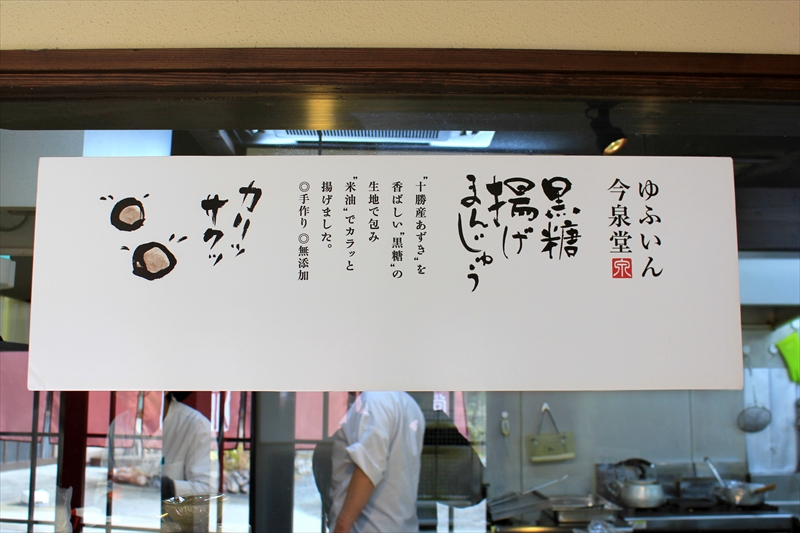 ゆふいん
今泉堂
泉
黒糖
揚げ
まんじゅう
"十勝産あずき"を
香ばしい"黒糖"の
生地で包み
"米油"でカラッと
揚げました。
◎手作り◎無添加
カリッ
サクッ